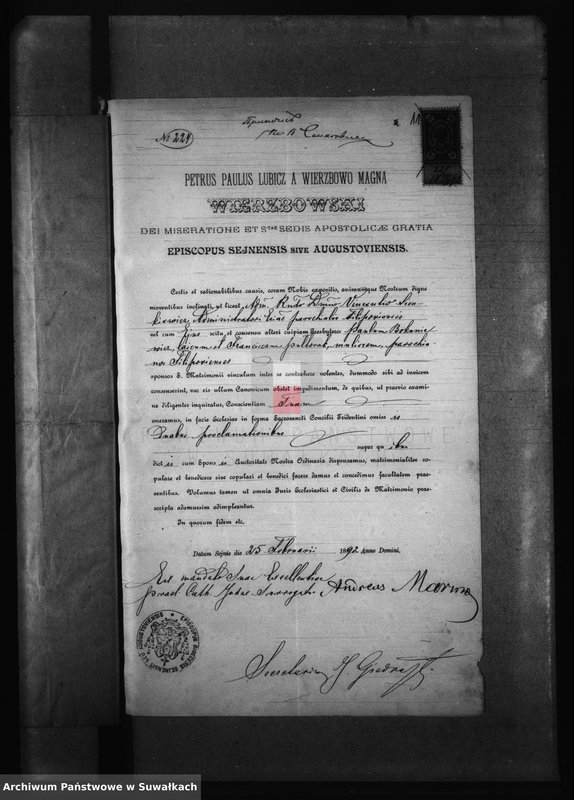 № 224
PETRUS PAULUS LUBICZ A WIERZBOWO MAGNA
WIERZBOWSKI
DEI MISERATIONE ET STAE SEDIS APOSTOLICÆ GRATIA
EPISCOPUS SEJNENSIS SIVE AUGUSTOVIENSIS.
Certis et rationabilibus causis, coram Nobis expositis, animumque Nostrum digne
moventibus inclinati, ut liceat, Adm. Rndo Dmno Vincentio
Administratori Ecclae parochialis Filipoviensis
vel cum Ejus scitu et consensu alteri cuipiam Presbytero Paulum
et Franciscam mulierem, parochia-
nos Filipovienses
sponsos S. Matrimonii vinculum inter se contrahere volentes, dummodo sibi ad invicem
consenserint, nec vis ullum Canonicum obstet impedimentum, de quibus, ut praevio exami-
ne diligenter inquiratur, Conscientiam Tuam
oneramus, in facie Ecclesiae in forma Sacrosancti Concilii Tridentini omiss is
Duabus proclamationibus
super qu ibus
dict is cum Spons is Auctoritate Nostra Ordinaria dispensamus, matrimonialiter co-
pulare et benedicere sive copulari et benedici facere damus et concedimus facultatem prae-
sentibus. Volumus tamen ut omnia Juris Ecclesiastici et Civilis de Matrimonio prae-
scripta adamussim adimpleantur.
In quorum fidem etc.
Datum Sejnis die 25 Februarii 1892 Anno Domini.
Ex mandato Suae Excellentiae
Cath. Judex Surrogatus Andreas
Secretarius J.
Archiwum Państwowe w Suwałkach